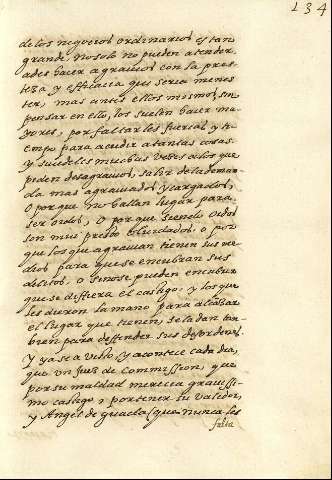 134
de los negocios ordinarios es tan
grande. No solo no pueden atender
a deshacer agravios con la pres-
teza y efficacia que seria menes
ter, mas antes ellos mismos, sin
pensar en ello, los suelen hacer ma
yores, por faltarles fuerças y ti-
empo para acudir a tantas cosas
y sucedeles muchas vezes a los que
piden desagravios, salir de la deman
da mas agraviados y cargados,
O porque no hallan lugar para
ser oidos, O porque siendo oidos
son mui presto olvidados. o por
que los que agravian tienen sus me
dios para que se encubran sus
delitos. o si no se pueden encubrir
que se difiera el castigo. y los que
les dieron la mano para alcãzar
el lugar que tienen, se la dan tan
bien para deffender sus desordenes.
Y ya se a visto, y acontece cada dia,
que un Juez de commission, que
por su maldad merecia gravissi-
mo castigo: por tener su valedor,
y Angel de guarda (que nunca les
falta